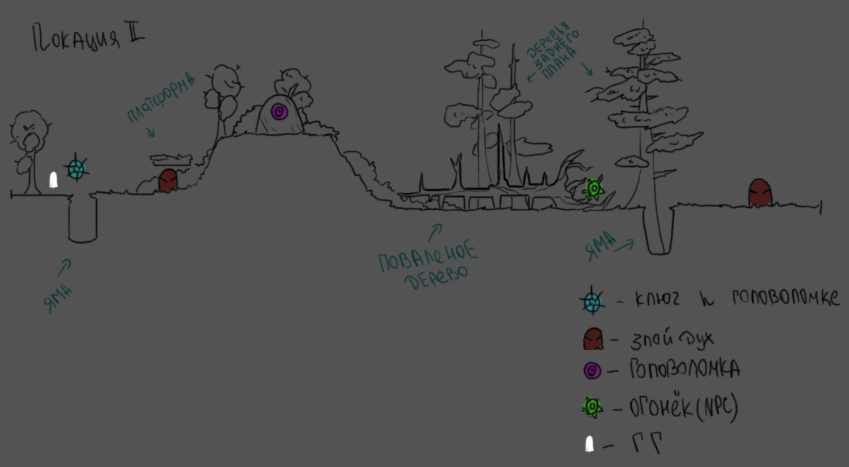 Локация II
платформа
деревья
заднего
плана
яма
поваленое
дерево
яма
- ключ к головоломке
- злой дух
- головоломка
- огонёк (NPC)
- ГГ